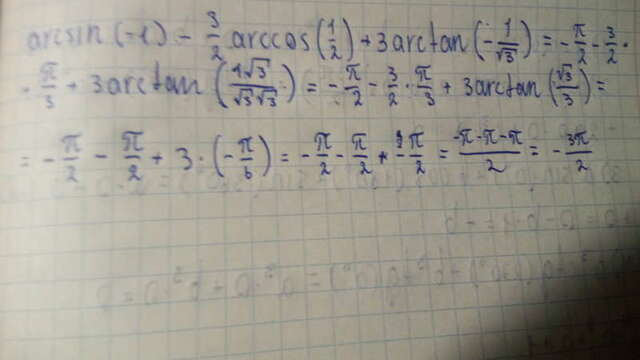 arcsin(-1) - 3/2 arccos(1/2) + 3 arctan(-1/√3) = -π/2 - 3/2 ·
· π/3 + 3 arctan(1√3/√3√3) = -π/2 - 3/2 · π/3 + 3 arctan(√3/3) =
= -π/2 - π/2 + 3 · (-π/6) = -π/2 - π/2 + -π/2 = -π-π-π/2 = -3π/2